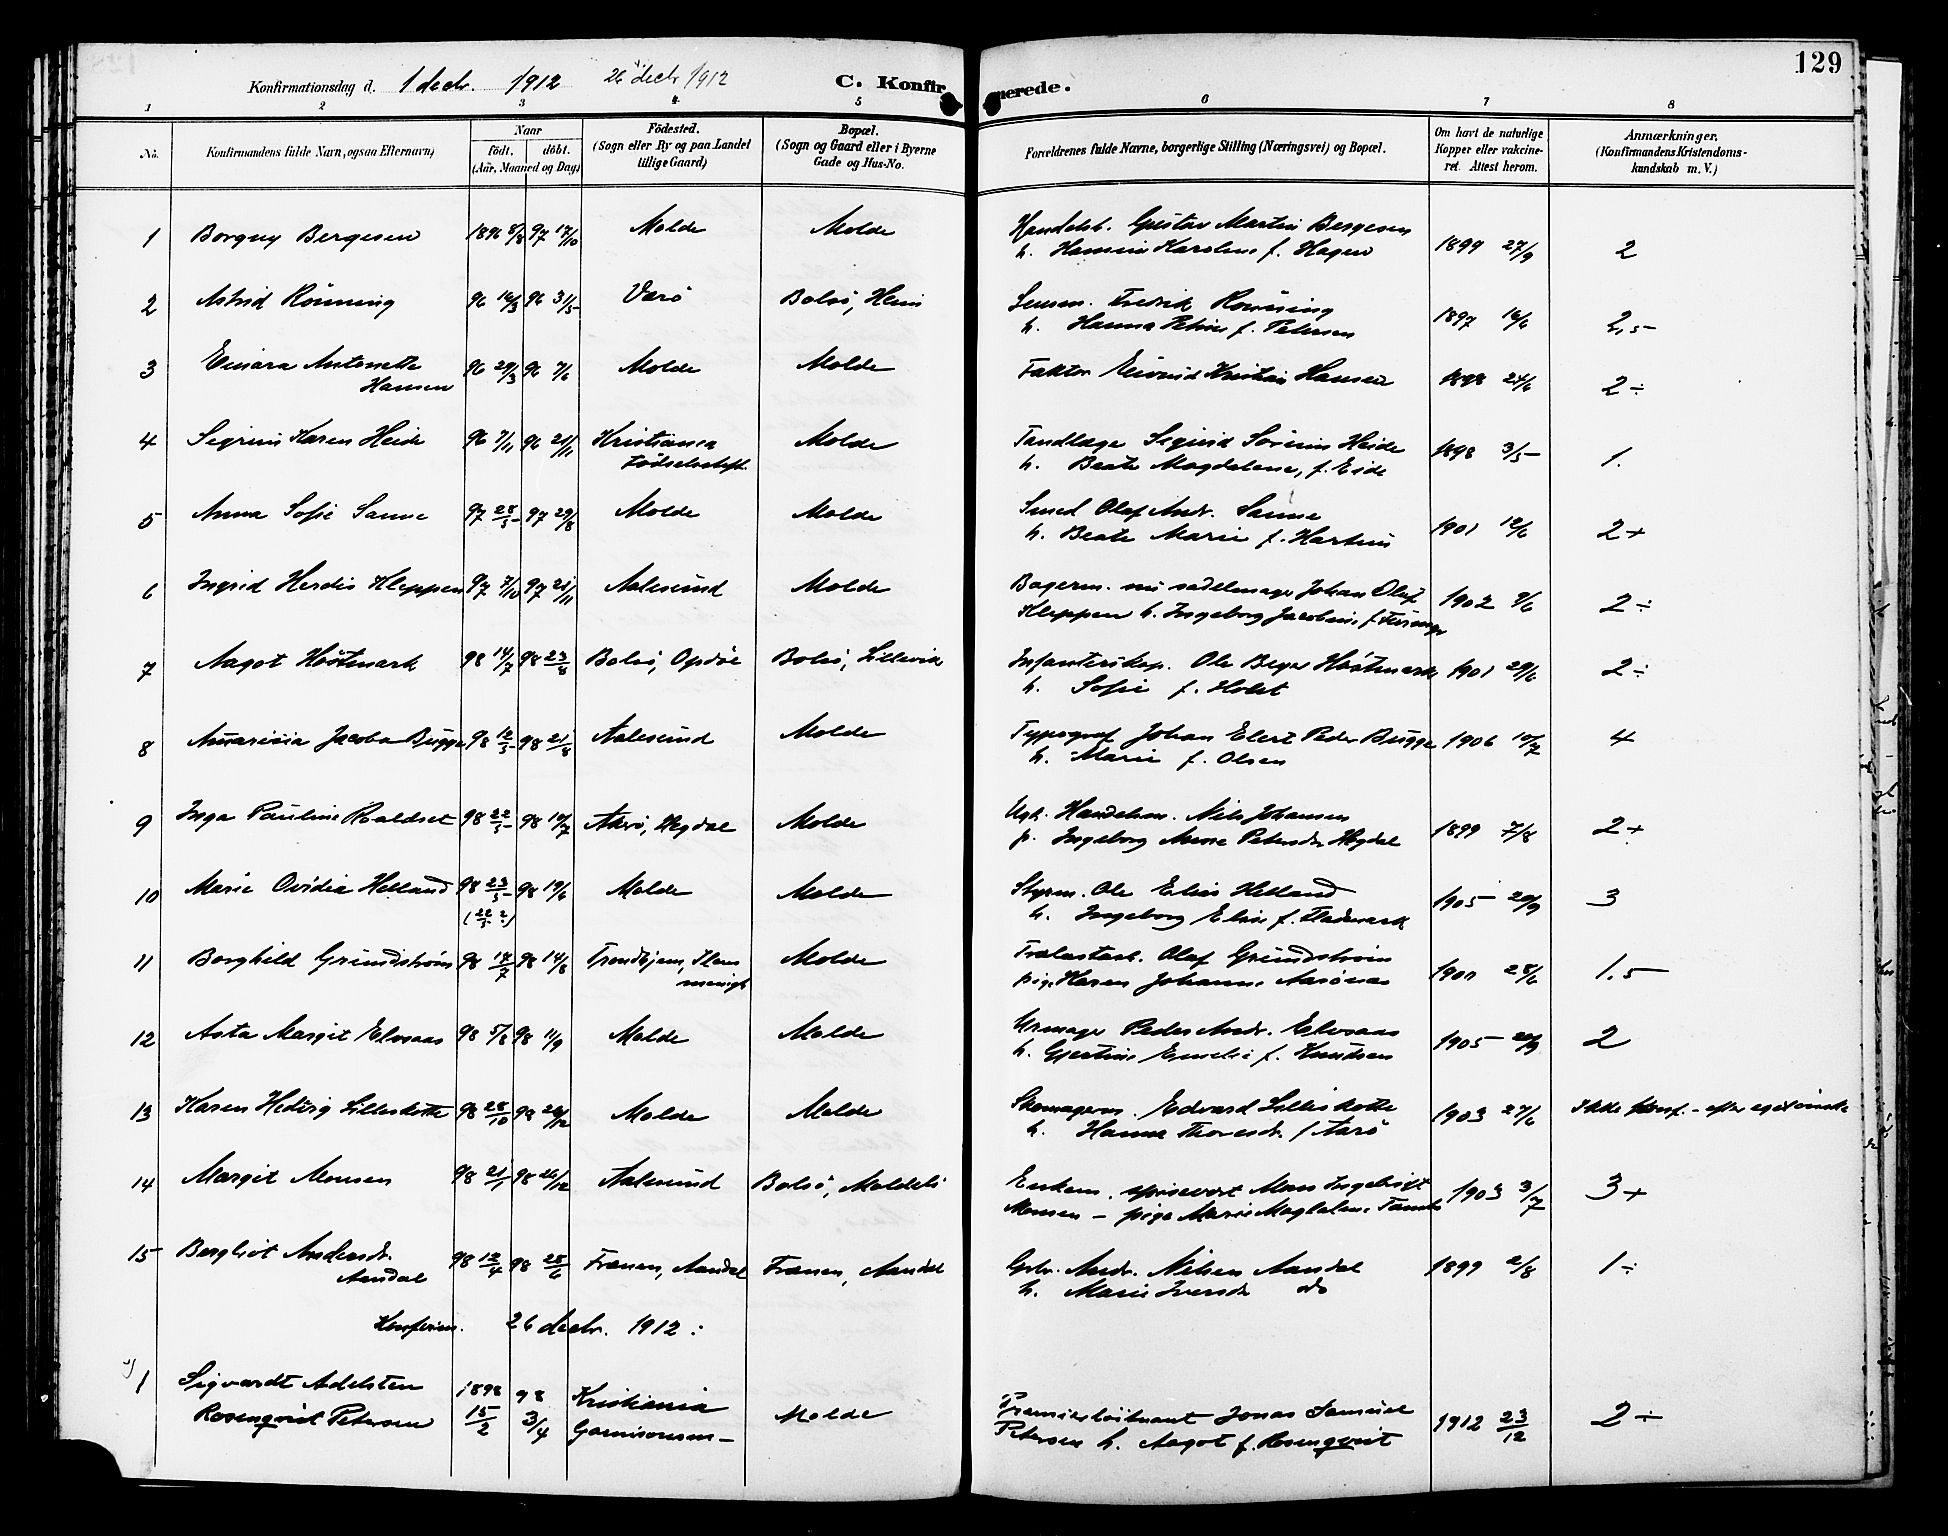 129
Konfirmationsdag d. 1 decbr. 1912 26 decbr 1912
C. Konfirmerede.
1 2 3 4 5 6 7 8
No.
Konfirmandens fulde Navn, ogsaa Efternavn)
Naar
födt. döbt.
(Aar, Maaned og Dag)
Födested.
(Sogn eller By og paa Landet
tillige Gaard)
Bopæl.
(Sogn og Gaard eller i Byerne
Gade og Hus-No.
Forældrenes fulde Navne, borgerlige Stilling (Næringsvei) og Bopæl.
Om havt de naturlige
Kopper eller vakcine-
ret. Attest herom.
Anmærkninger.
(Konfirmandens Kristendoms-
kundskab m. V.)
1 Borguy Bergesen 1896 8/8 97 17/10 Molde Molde Handelsb. Gustav Martin Bergesen 1899 27/9 2
h. Hansine Karoline f. Hagen
2 Astrid Rönning 96 16/3 96 31/5 Værö Bolsö, Heim Lensm. Fredrik Rönning 1897 16/6 2,5
h. Hanna Petrine f. Petersen
3 Einara Antonette 96 29/3 96 7/6 Molde Molde Faktor Eivind Kristian Hansen 1898 24/6 2÷
Hansen
4 Sigrun Karen Heide 96 7/11 96 21/11 Kristiania Molde Tandlæge Sigurd Sörenn Heide 1898 3/5 1.
Födselsstift. h. Beate Magdalene, f. Eide
5 Anna Sofie Sanne 97 28/5 97 29/8 Molde Molde Smed Olaf Andr. Sanne 1901 12/6 2+
h. Beate Marie f.
6 Ingrid Herdis Kleppen 97 7/10 97 21/11 Aalesund Molde Bagerm. nu sadelmager Johan Oluf 1902 9/6 2÷
Kleppen h. Ingeborg Jacobine f.
7 Aagot Höstmark 98 14/7 98 23/8 Bolsö, Opdöl Bolsö, Lillevik Infanterikap. Ole Beyer Höstmark 1901 29/6 2÷
h. Sofie f. Holst
8 Annarisia Jacoba Bugge 98 12/5 98 21/8 Aalesund Molde Typograf Johan Elert Peder Bugge 1906 10/7 4
h. Marie f. Olsen
9 Inga Pauline Roaldset 98 22/5 98 10/7 Akrö, Hegdal Molde Ugk. Handelsm. Nils Johansen 1899 7/8 2+
p. Ingeborg Anne Petersdr Hegdal
10 Marie Ovidia Helland 98 23/5 98 19/6 Molde Molde Styrm. Ole Elias Helland 1905 20/9 3
(22/5 ?) h. Ingeborg Elise f. Flademark
11 Borghild Grundström 98 18/7 98 14/8 Trondhjem, Molde Trælastarb. Olaf Grundström 1901 28/6 1.5
menigh. pige Karen Johanne Aarönæs
12 Asta Margit Elvsaas 98 5/8 98 11/9 Molde Molde Urmager Peder Andr. Elvsaas 1905 20/9 2
h. Gjertine Emelie f. Knudsen
13 Karen Hedvig Lilleskotte 98 28/10 98 26/12 Molde Molde Skomagerm. Edvard Lilleskotte 1903 27/6 Ikke konf. - efter eget önske
h. Hanna Thoresdr. f Aarö
14 Margit Monsen 98 21/1 98 26/12 Aalesund Bolsö, Moldeli Enkem. Mons Ingebrigt 1903 3/7 3+
Monsen - pige Marie Magdalene
15 Bergliot Andersdr. 98 12/4 98 28/6 Frænen, Aandal Frænen, Aandal Gbr. Andr. Nilsen Aandal 1899 2/8 1÷
Aandal h. Marie Iversdr do
Konfirm. 26 decbr. 1912:
1 Sigvardt Adelsten 1898 15/2 98 3/4 Kristiania Molde Premierlöitnant Jonas Samuel 1912 23/12 2÷
Rosenqvist Petersen Garnisonsm- Petersen h. Aagot f. Rosenqvist